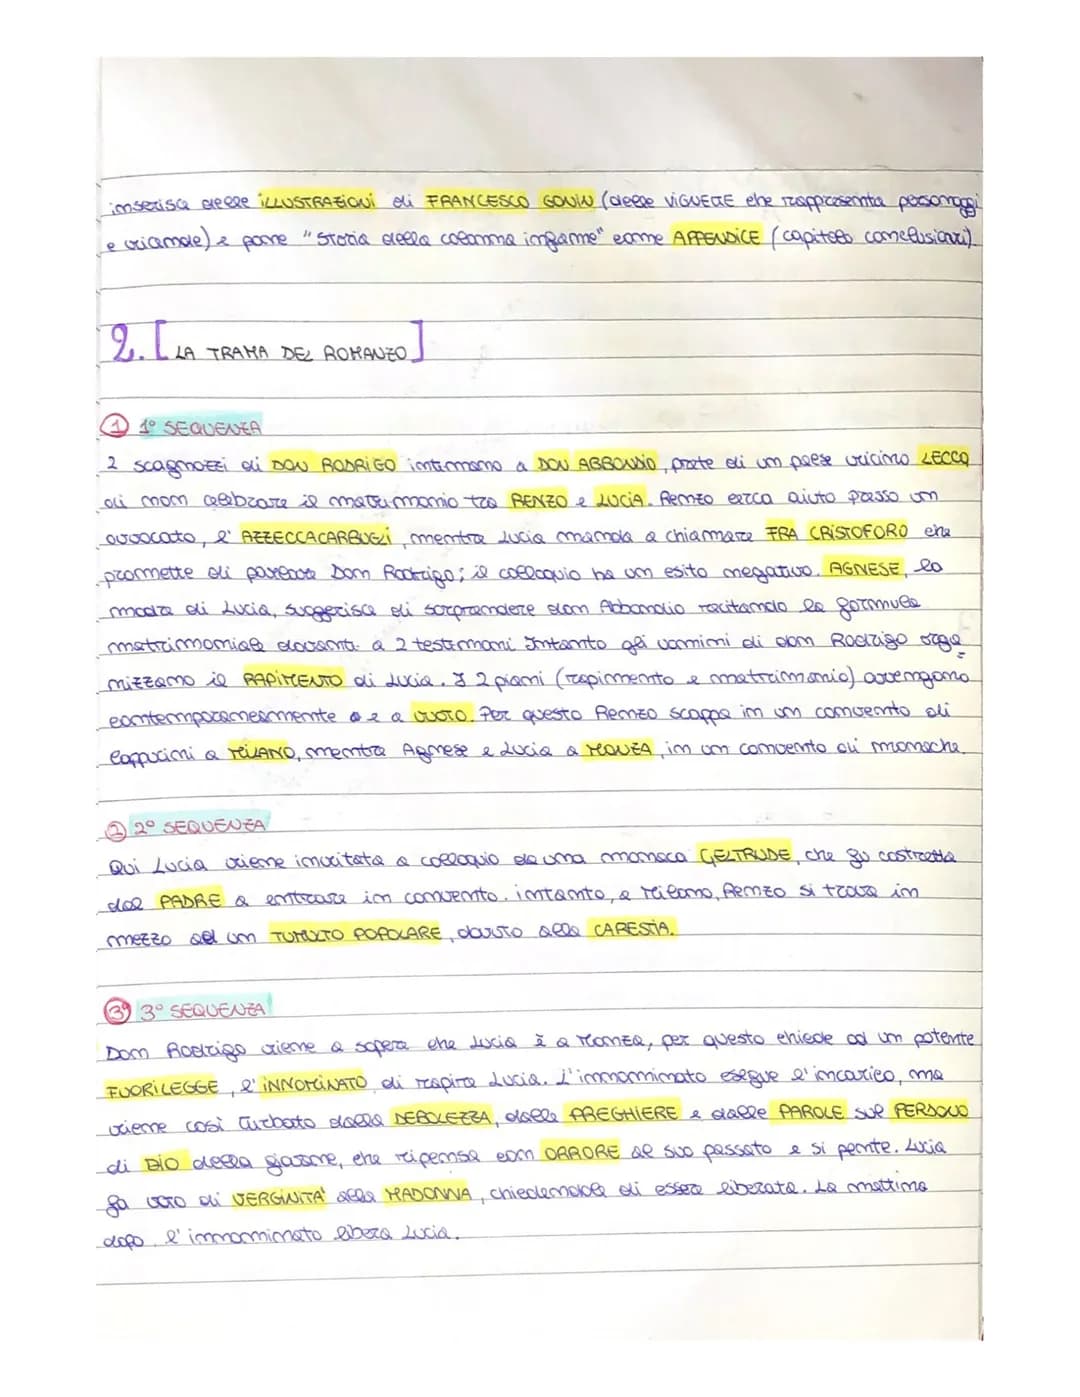 inserisce delle ILLUSTRAZIONI di FRANCESCO GONIN (delle VIGNETTE che rappresenta personaggi
e vicende) e pone "Storia della colonna infame" come APPENDICE (capitolo conclusivo).
2. [LA TRAMA DEL ROMANZO]
① 1° SEQUENZA
2 scagnozzi di DON RODRIGO intimano a DON ABBONDIO, prete di un paese vicino LECCO
di non celebrare il matrimonio tra RENZO e LUCIA. Renzo cerca aiuto presso un
avvocato, l'AZZECCAGARBUGLI, mentre Lucia manda a chiamare FRA CRISTOFORO che
promette di parlare Don Rodrigo; il colloquio ha un esito negativo. AGNESE, la
madre di Lucia, suggerisce di sorprendere don Abbondio recitando la formula
matrimoniale davanti a 2 testimoni. Intanto gli uomini di don Rodrigo orga
nizzano il RAPIMENTO di Lucia. I 2 piani (rapimento e matrimonio) avvengono
contemporaneamente e a VUOTO. Per questo Renzo scappa in un convento di
cappucini a MILANO, mentre Agnese e Lucia a MONZA, in un convento di monache.
② 2° SEQUENZA
Qui Lucia viene invitata a colloquio da una monaca GELTRUDE, che fu costretta
dal PADRE a entrare in convento. intanto, a Milano, Renzo si trova in
mezzo ad un TUMULTO POPOLARE, dovuto alla CARESTIA.
③ 3° SEQUENZA
Don Rodrigo viene a sapere che Lucia è a Monza, per questo chiede ad un potente
FUORILEGGE, l'INNOMINATO di rapire Lucia. L'innominato esegue l'incarico, ma
viene così turbato dalla DEBOLEZZA, dalle PREGHIERE e dalle PAROLE SUL PERDONO
di DIO della giovane, che ripensa con ORRORE al suo passato e si pente. Lucia
fa voto di VERGINITA' alla MADONNA, chiedendole di essere liberata. La mattina
dopo l'innominato libera Lucia.